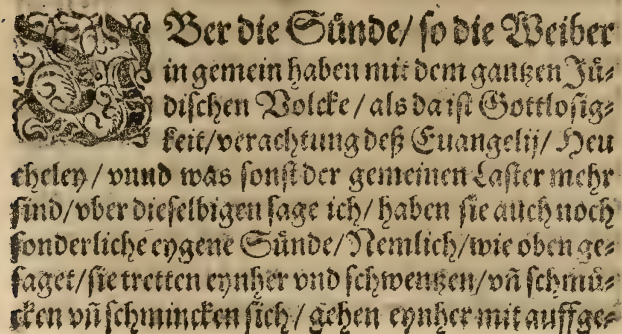 VBer die Sünde/ so die Weiber
in gemein haben mit dem gantzen Jü⸗
dischen Volcke / als da ist Gottlosig⸗
keit/verachtung deß Euangelij/ Heu
cheley / vnnd was sonst der gemeinen Laster mehr
sind/vber dieselbigen sage ich/ haben sie auch noch
sonderliche eygene Sünde/Nemlich/wie oben ge⸗
saget/sie tretten eynher vnd schwentzen/vñ schmü⸗
cken vñ schmincken sich / gehen eynher mit auffge⸗